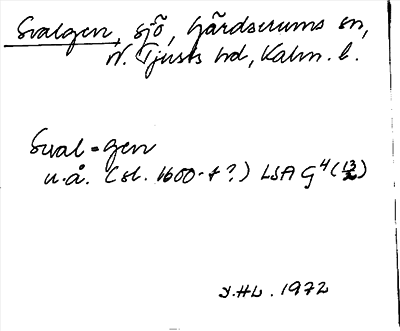 Svalgen, sjö, Gärdserums sn,
N. Tjusts hd, Kalm. l.
Sval-gen
u.å. (sl. 1600-t?) LSA G4 (13/2)
J.HL. 1972